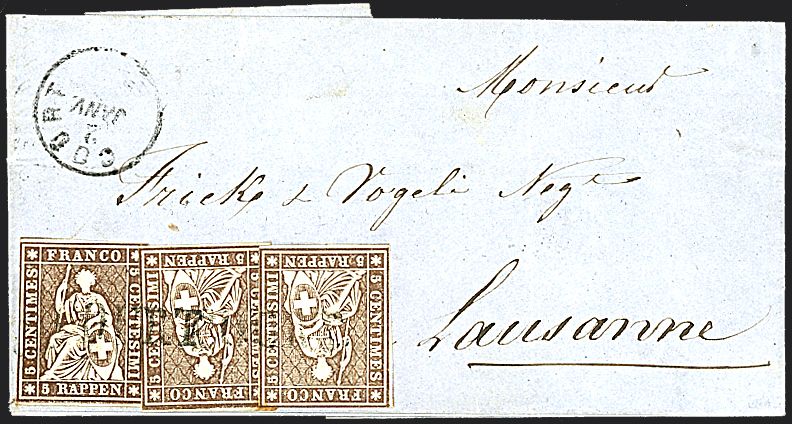 Monsieur
Frick & Vogeli Negt
Lausanne
JANV
2
FRANCO
5 CENTIMES
5 CENTESIMI
5 RAPPEN
5 RAPPEN
5 CENTIMES
5 CENTESIMI
FRANCO
5 RAPPEN
5 CENTESIMI
5 CENTIMES
FRANCO